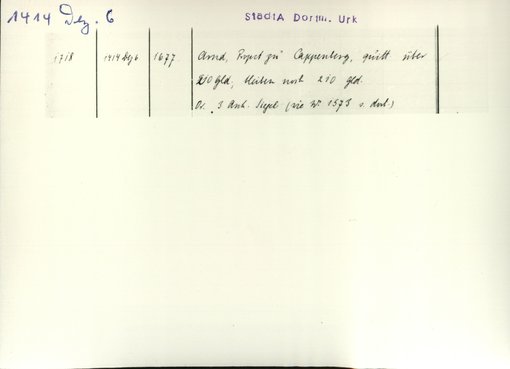 1414 Dez. 6
StadtA Dortm. Urk
1718 1414 Dez 6 1677. Arnd, Propst zu Cappenberg, quitt. über
210 Gld, bleiben noch 210 Gld.
Or. 3 Anh. Siegel (wie Nr 1573 s. dort)